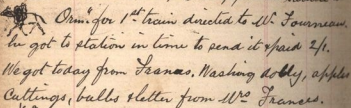 for 1st train directed to Mr. Fourneau.
he got to station in time to send it & paid 2/1.
We got today from Frances. Washing dolly, apples
Cuttings, bulbs & letter from Mrs Frances.